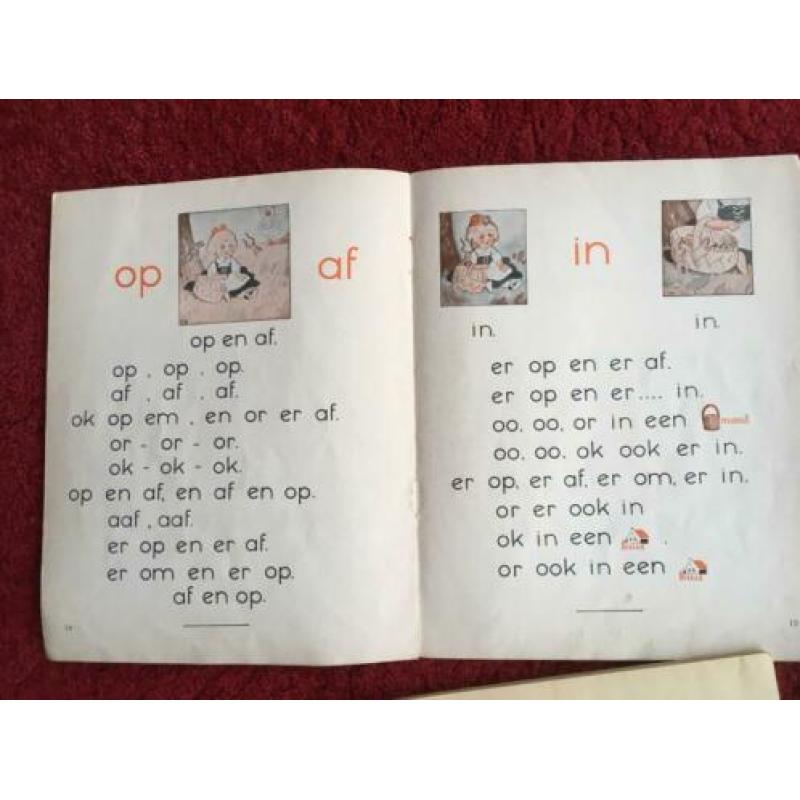 op af
op en af.
op , op , op.
af , af , af.
ok op em , en or er af.
or - or - or.
ok - ok - ok.
op en af, en af en op.
aaf , aaf.
er op en er af.
er om en er op.
af en op.
in
in. in.
er op en er af.
er op en er.... in.
oo, oo, or in een mand
oo, oo, ok ook er in.
er op, er af, er om, er in.
or er ook in
ok in een .
or ook in een